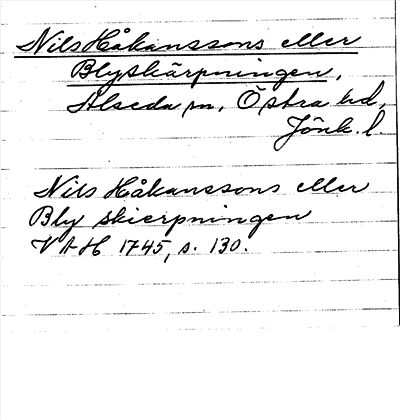 Nils Håkanssons eller
Blyskärpningen,
Alseda sn, Östra hd,
Jönk. l.
Nils Håkanssons eller
Bly skierpningen
VAH 1745, s. 130.